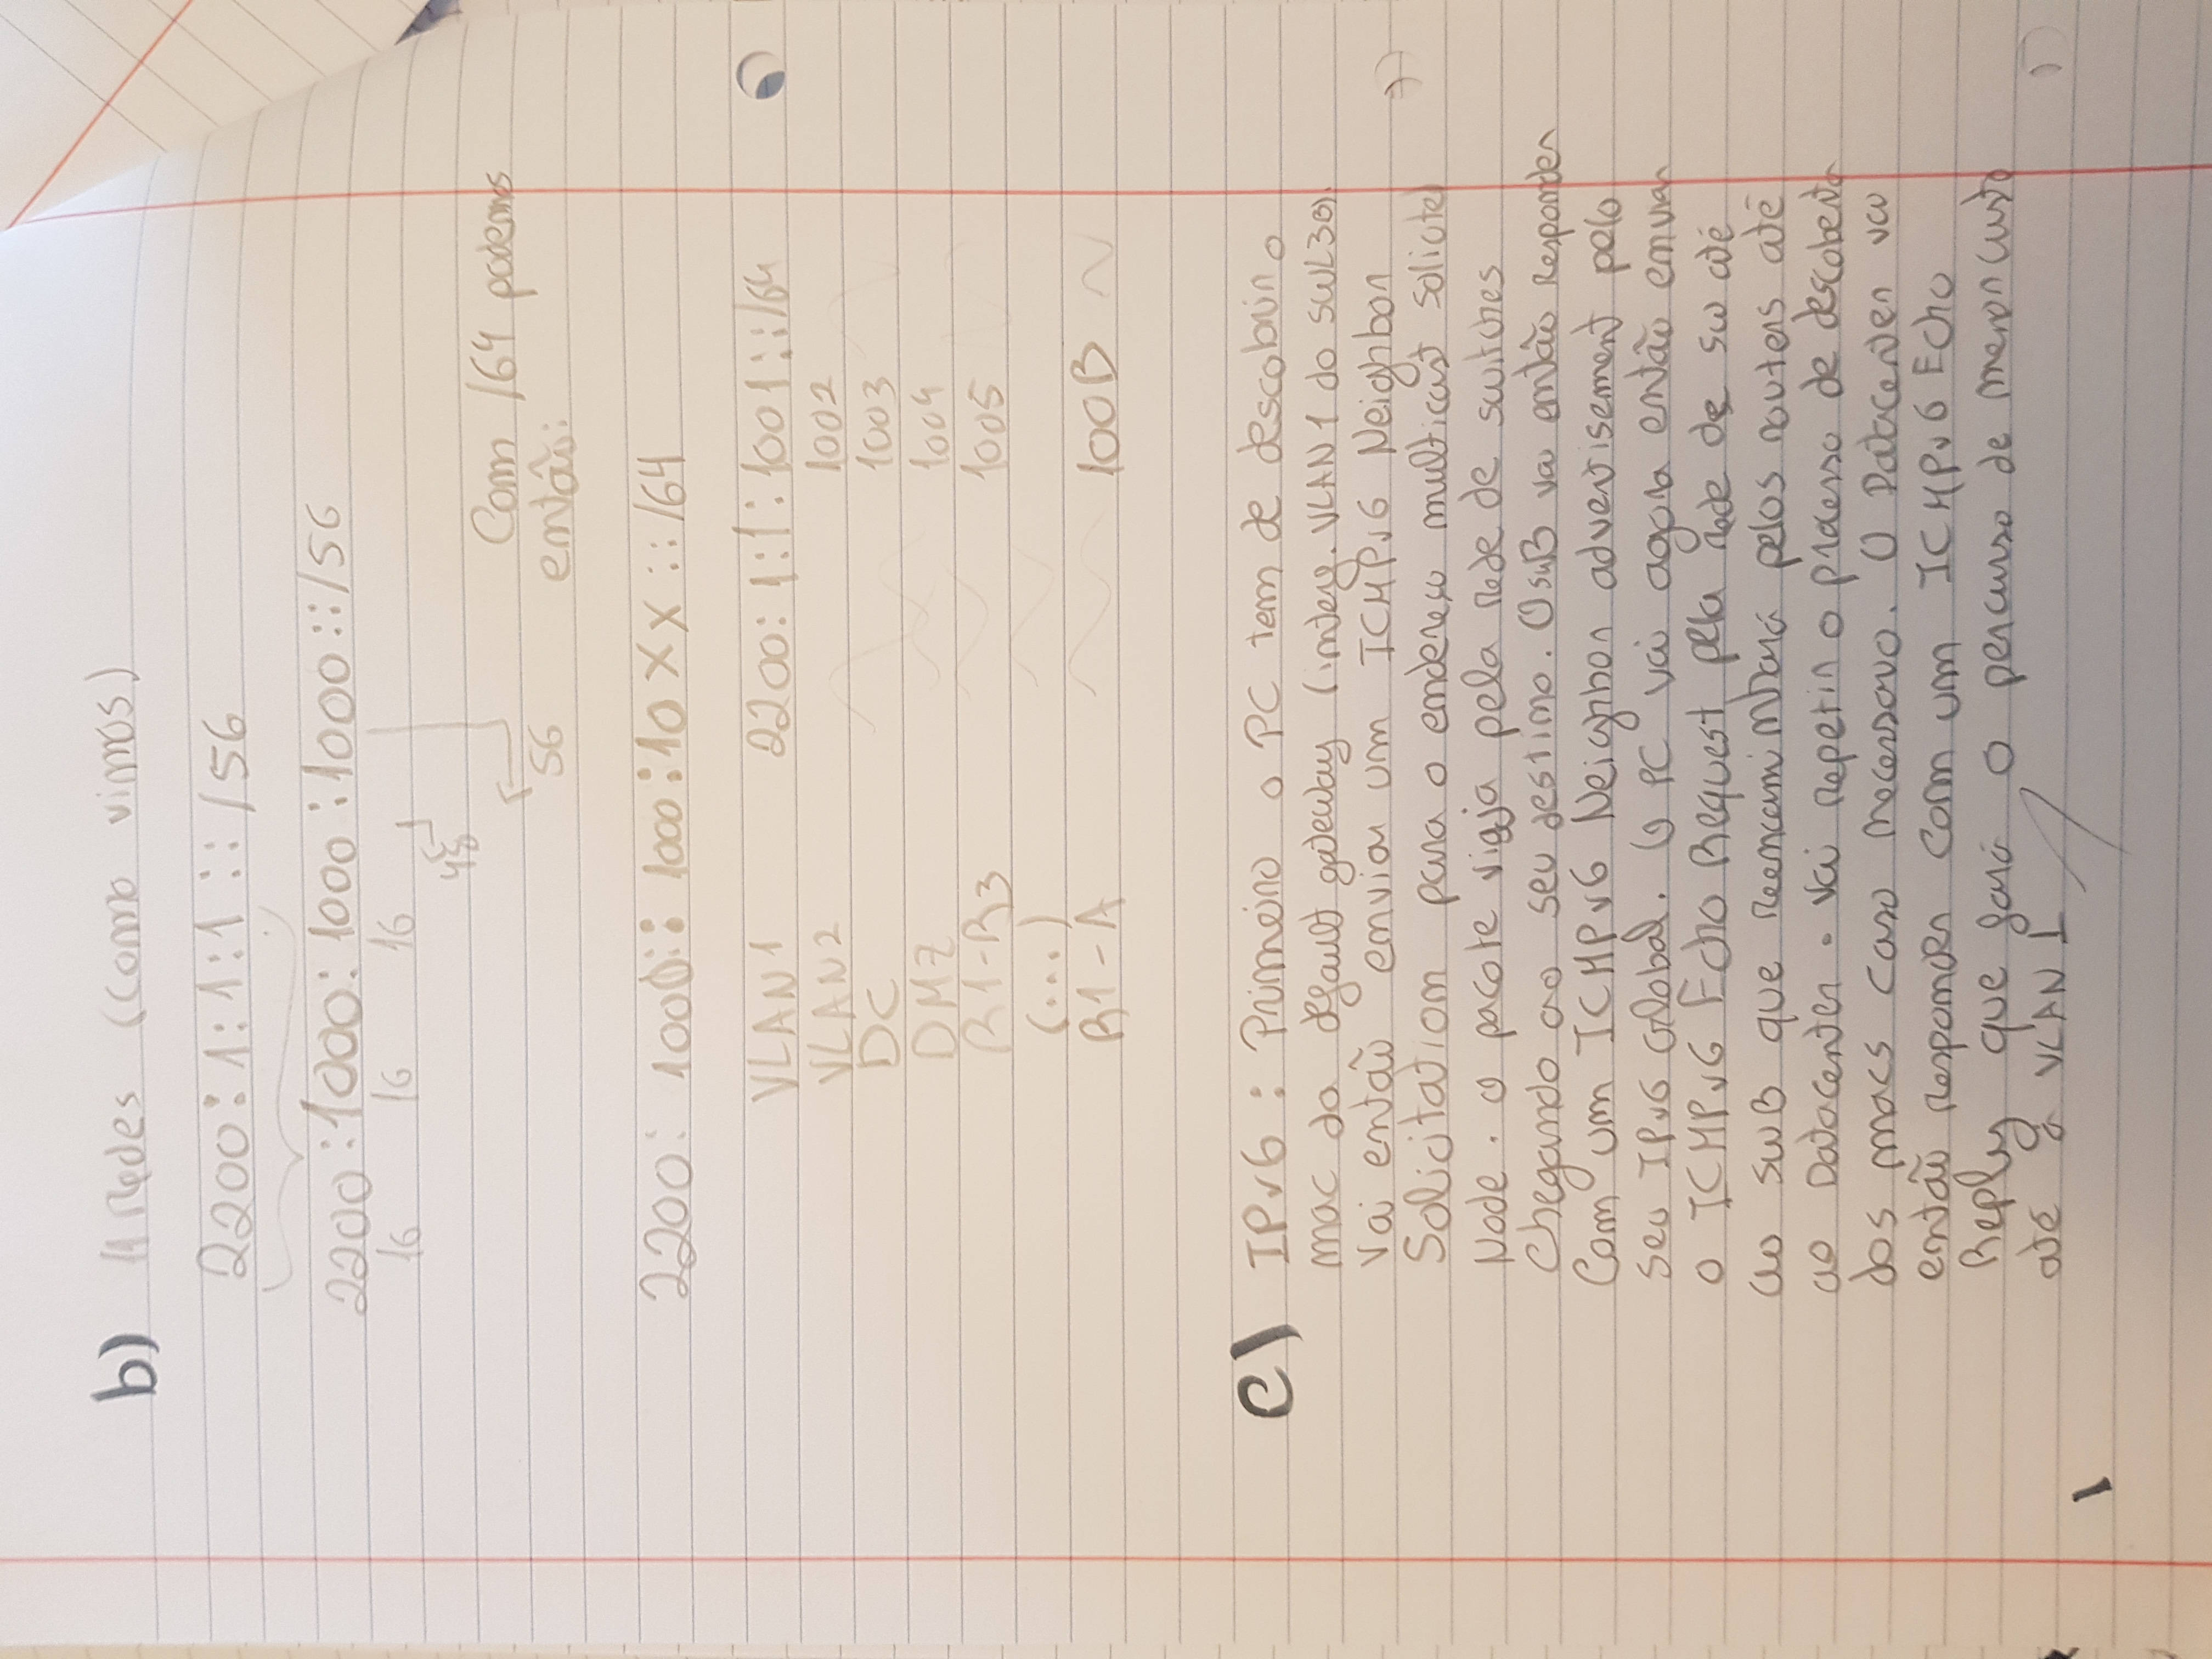 b) 11 Redes (como vimos)
2200:1:1:1::/56
2200:1000:1000:1000::/56
16 16 16
48
56
Com /64 podemos
então:
2200: 1000: 1000:10XX::/64
VLAN1 2200:1:1:1001::/64
VLAN2 1002
DC 1003
DMZ 1004
R1-R3 1005
(...)
R1-A 100B ~
c) IPv6: Primeiro o PC tem de descobrir o
mac da default gateway (interf. VLAN1 do SWL3B).
Vai então enviar um ICMPv6 Neighbor
Solicitation para o endereço multicast solicited
Node. O pacote viaja pela rede de switches
chegando ao seu destino. O swB vai então responder
com um ICMPv6 Neighbor advertisement pelo
seu IPv6 Global. O PC vai agora então enviar
o ICMPv6 Echo Request pela rede de sw até
ao swB que reencaminhará pelos routers até
ao Datacenter. Vai repetir o processo de descoberta
dos macs caso necessario. O Datacenter vai
então responder com um ICMPv6 Echo
Reply que fará o percurso de menor custo
até à VLAN 1